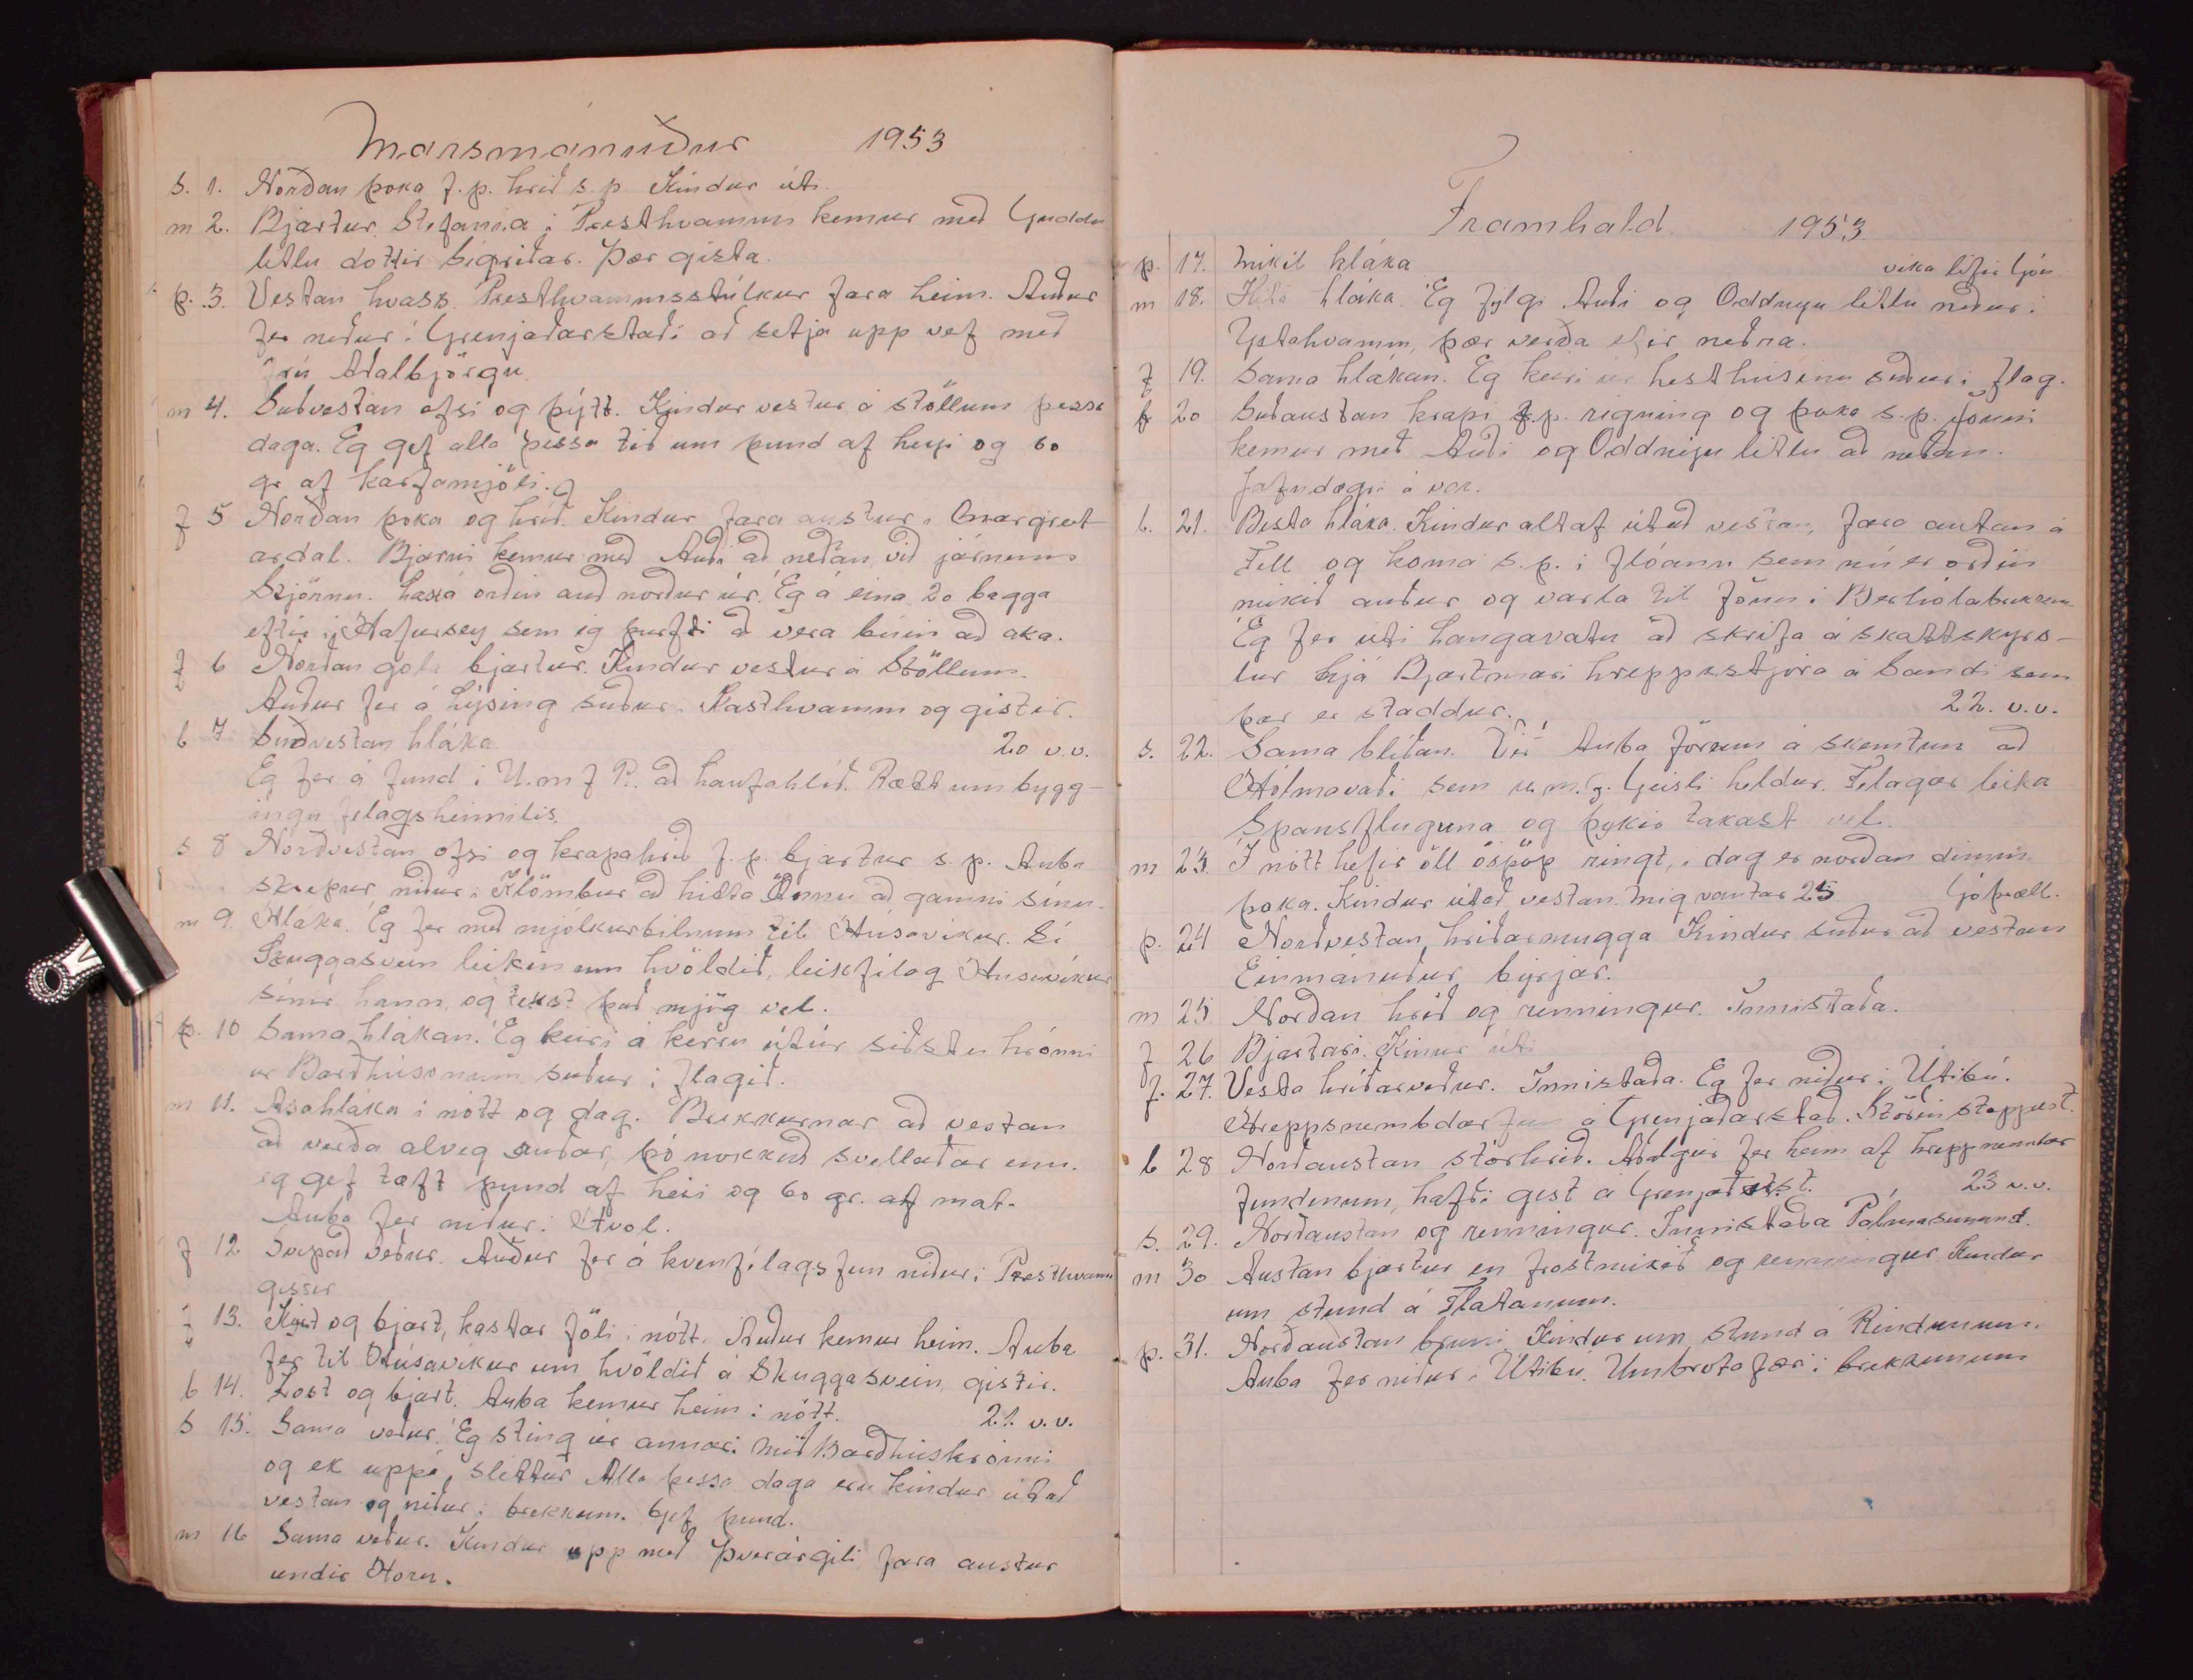 Marsmánuður 1953
S. 1. Norðan þoka f.p. hríð s.p. Kindur úti.
m 2. Bjartur. Stefanía í Presthvammi kemur með Guddu
litlu dóttir Sigríðar. Þær gista.
þ. 3. Vestan hvass. Presthvammsstúlkur fara heim. Auður
fer niður í Grenjaðarstaði að setja upp vef með
frú Aðalbjörgu.
m 4. Suðvestan ofsi og þýtt. Kindur vestur á stöllum þessa
daga. Eg gef alla þessa tíð um pund af heyi og 60
gr af karfamjöli.
f 5 Norðan þoka og hríð. Kindur fara austur í
ardal. Bjarni kemur með Auði að neðan, við járnum
Stjörnu. Laxá orðin auð norður úr. Eg á eina 20 bagga
eftir í Hafursey sem eg þurfti að vera búin að aka.
f 6 Norðan gola bjartur. Kindur vestur á Stöllum.
Auður fer á Lýsing suður í Kasthvamm og gistir.
l 7 Suðvestan hláka. 20 v.v.
Eg fer á fund í U.m f R. að haufahlíð. Rætt um bygg-
ingu felagsheimilis.
s 8 Norðvestan ofsi og krapahríð f.p. bjartur s.p. Auba
skrepur niður í Klömbur að hitta Önnu að gamni sínu.
m 9. Hláka. Eg fer með mjólkurbílnum til Húsavíkur. Sí
Skuggasvein leikin um kvöldið, leikfélag Húsavíkur
sínir hann og tekst það mjög vel.
þ. 10 Sama hlákan. Eg keiri á kerru útúr síðstu hrönni
úr Barðhúsonum suður í flagið.
m 11. Asahláka í nótt og dag. Brekkurnar að vestan
að verða alveg auðar, þó nokkuð svellaðar enn.
eg gef tæft pund af heii og 60 gr. af mat.
Auba fer niður í Hvol.
f 12 Svipað veður. Auður fer á kvenfélags fun niður í Presthvamm
gistir
f 13. Kyrt og bjart, kastar föli í nótt. Auður kemur heim. Auba
fer til Húsavíkur um kvöldið á Skuggasvein, gistir.
l 14. Lost og bjart. Auba kemur heim í nótt. 21. v.v.
S 15. Sama veður. Eg sting úr annari mið Barðhúskrónni
og ek uppá slettur Alla þessa daga eru kindur útað
vestan og niður í brekkum. Gef pund.
m 16 Sama veður. Kindur upp með Þverárgili fara austur
undir Horn.
Framhald. 1953.
þ. 17. Mikil hláka vika lifir Góu
m 18. hláka. Eg fylgi Auði og Oddnyu litlu niður í
Ystahvamm, þær verða eftir neðra.
f 19. Sama hlákan. Eg keiri úr hesthúsinu suður í flag.
f 20 Suðaustan krapi f.p. rigning og þoka s.p. Jónni
kemur með Auði og Oddnýu litlu að neðan.
Jafndægri á vor.
l. 21. Besta hláka. Kindur altaf útað vestan, fara autan á
Fell og koma s.p. í flóann sem nú er orðin
mikið auður og varla til fönn í
Eg fer úti Langavatn að skrifa á skattskyrs-
lur hjá Bjartmari hreppsstjóra á Sandi sem
þar er staddur. 22. v.v.
s. 22. Sama blíðan. Við Auba förum á skemtun að
Hólmavaði sem u.m.f. Geisli heldur. Felagar leika
Spansfluguna og þykir takast vel.
m 23. Í nótt hefir öll ósköp ringt, í dag er norðan dimm
þoka. Kindur útað vestan. Mig vantar 25. Góþræll.
þ. 24 Norðvestan hríðarmugga Kindur suður að vestan
Einmánuður byrjar.
m 25. Norðan hríð og renningur. Innistaða.
f 26 Bjartari. Kinur úti
f. 27. Vesta hríðarveður. Innistaða. Eg fer niður í Útibú.
Hreppsnembdar fun á Grenjaðarstað. Störin stoppust.
l 28 Norðaustan stórhríð. Aðalgeir fer heim af hreppnemdar
fundinum, hafði gist á Grenjaðarst. 23 v.v.
s. 29. Norðaustan og renningur. Innistaða Pálmasunnud.
m 30 Austan bjartur en frostmikið og renningur Kindur
um stund á Flatanum.
þ. 31. Norðaustan bruni Kindur um stund á Rindunum.
Auba fer niður í Útibú. Umbrota færi í brekkunum